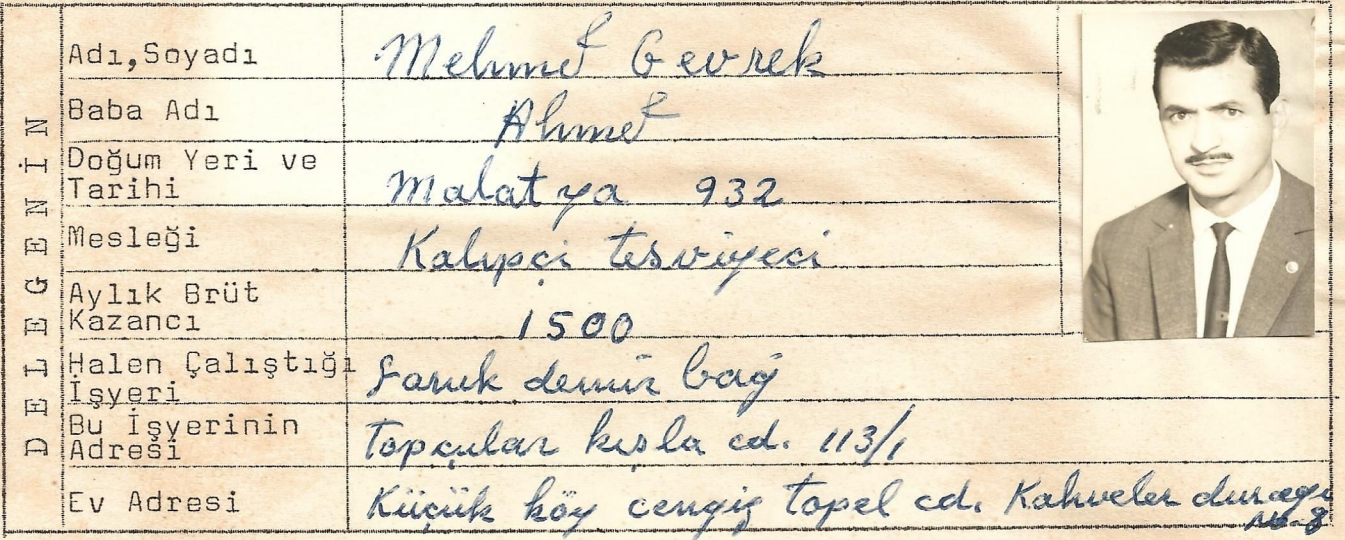 DELEGENİN
Adı,Soyadı Mehmet Gevrek
Baba Adı Ahmet
Doğum Yeri ve
Tarihi Malatya 932
Mesleği Kalıpçi tesviyeci
Aylık Brüt
Kazancı 1500
Halen Çalıştığı
İşyeri Faruk demir bağ
Bu İşyerinin
Adresi Topçular kışla cd. 113/1
Ev Adresi Küçük köy cengiz topel cd. Kahveler durağı
No-8